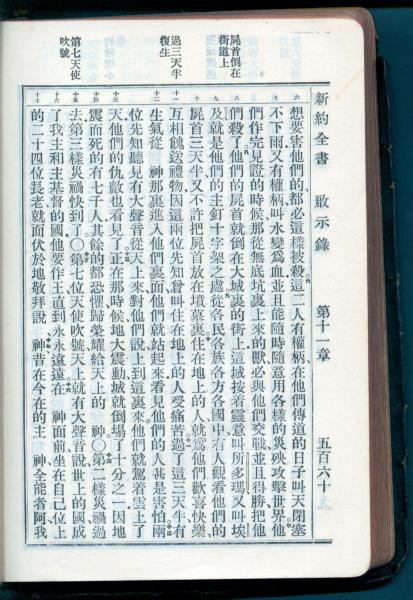 新約全書 啟示錄 第十一章 五百六十九
屍首倒在
街道上
過三天半
復生
第七天使
吹號
想要害他們的都必這樣被殺這二人有權柄在他們傳道的日子叫天閉塞
不下雨又有權柄叫水變爲血並且能隨時隨意用各樣的災殃攻擊世界他
們作完見證的時候那從無底坑裏上來的獸必與他們交戰並且得勝把他
們殺了他們的屍首就倒在大城裏的街上這城按着靈意叫所多瑪又叫埃
及就是他們的主釘十字架之處從各民各族各方各國中有人觀看他們的
屍首三天半又不許把屍首放在墳墓裏住在地上的人就爲他們歡喜快樂
互相餽送禮物因這兩位先知曾叫住在地上的人受痛苦過了這三天半有
生氣從 神那裏進入他們裏面他們就站起來看見他們的人甚是害怕兩
位先知聽見有大聲音從天上來對他們說上到這裏來他們就駕着雲上了
天他們的仇敵也看見了正在那時候地大震動城就倒塌了十分之一因地
震而死的有七千人其餘的都恐懼歸榮耀給天上的 神〇第二樣災禍過
去第三樣災禍快到了〇第七位天使吹號天上就有大聲音說世上的國成
了我主和主基督的國他要作王直到永永遠遠在 神面前坐在自己位上
的二十四位長老就面伏於地敬拜說 神昔在今在的主 神全能者阿我